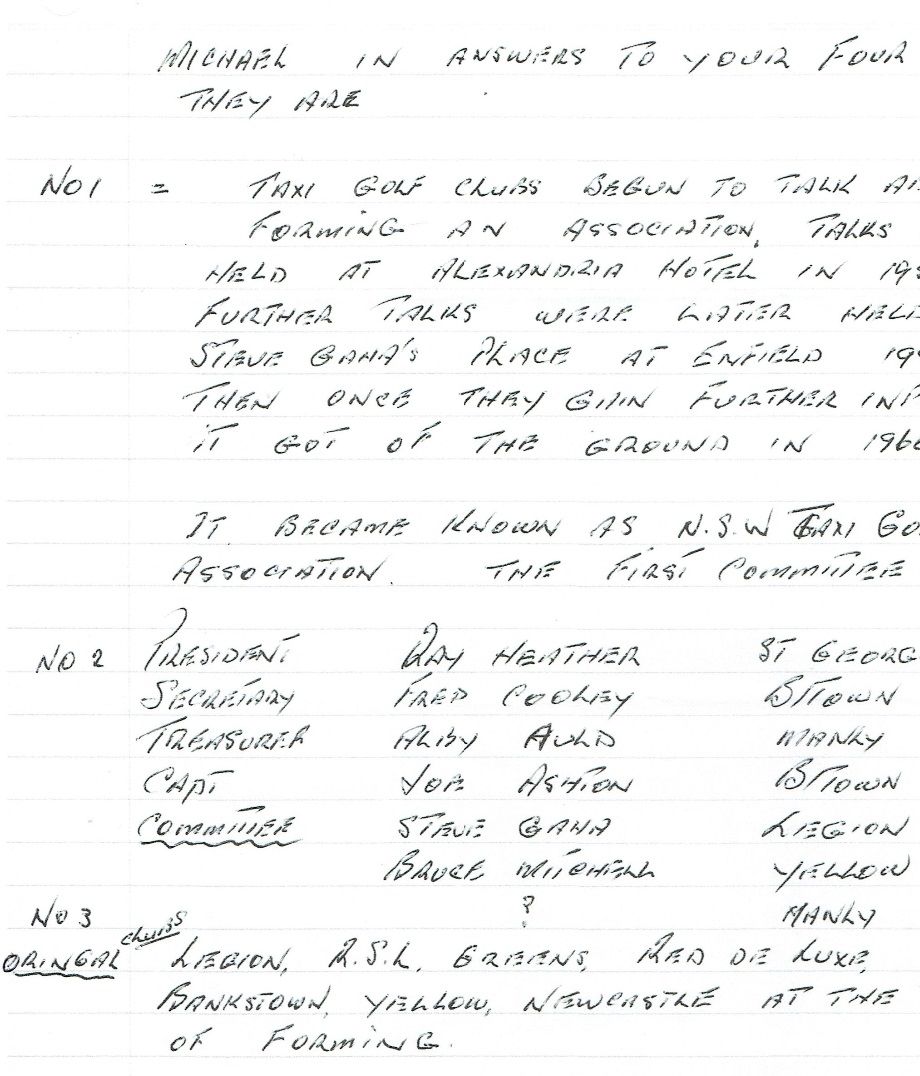 MICHAEL IN ANSWERS TO YOUR FOUR
THEY ARE
NO1 = TAXI GOLF CLUBS BEGUN TO TALK
FORMING AN ASSOCIATION, TALKS
HELD AT ALEXANDRIA HOTEL IN
FURTHER TALKS WERE LATER HELD
STEVE GAHA'S PLACE AT ENFIELD
THEN ONCE THEY GAIN FURTHER
IT GOT OF THE GROUND IN 196
IT BECAME KNOWN AS N.S.W TAXI GO
ASSOCIATION. THE FIRST COMMITTEE
NO 2 PRESIDENT RAY HEATHER ST GEORG
SECRETARY FRED COOLEY B/TOWN
TREASURER ALBY AULD MANLY
CAPT JOE ASHTON B/TOWN
COMMITTEE STEVE GAHA LEGION
BRUCE MITCHELL YELLOW
NO 3 ? MANLY
ORINGAL CLUBS LEGION, R.S.L, GREENS, RED DE LUXE,
BANKSTOWN, YELLOW, NEWCASTLE AT THE
OF FORMING.